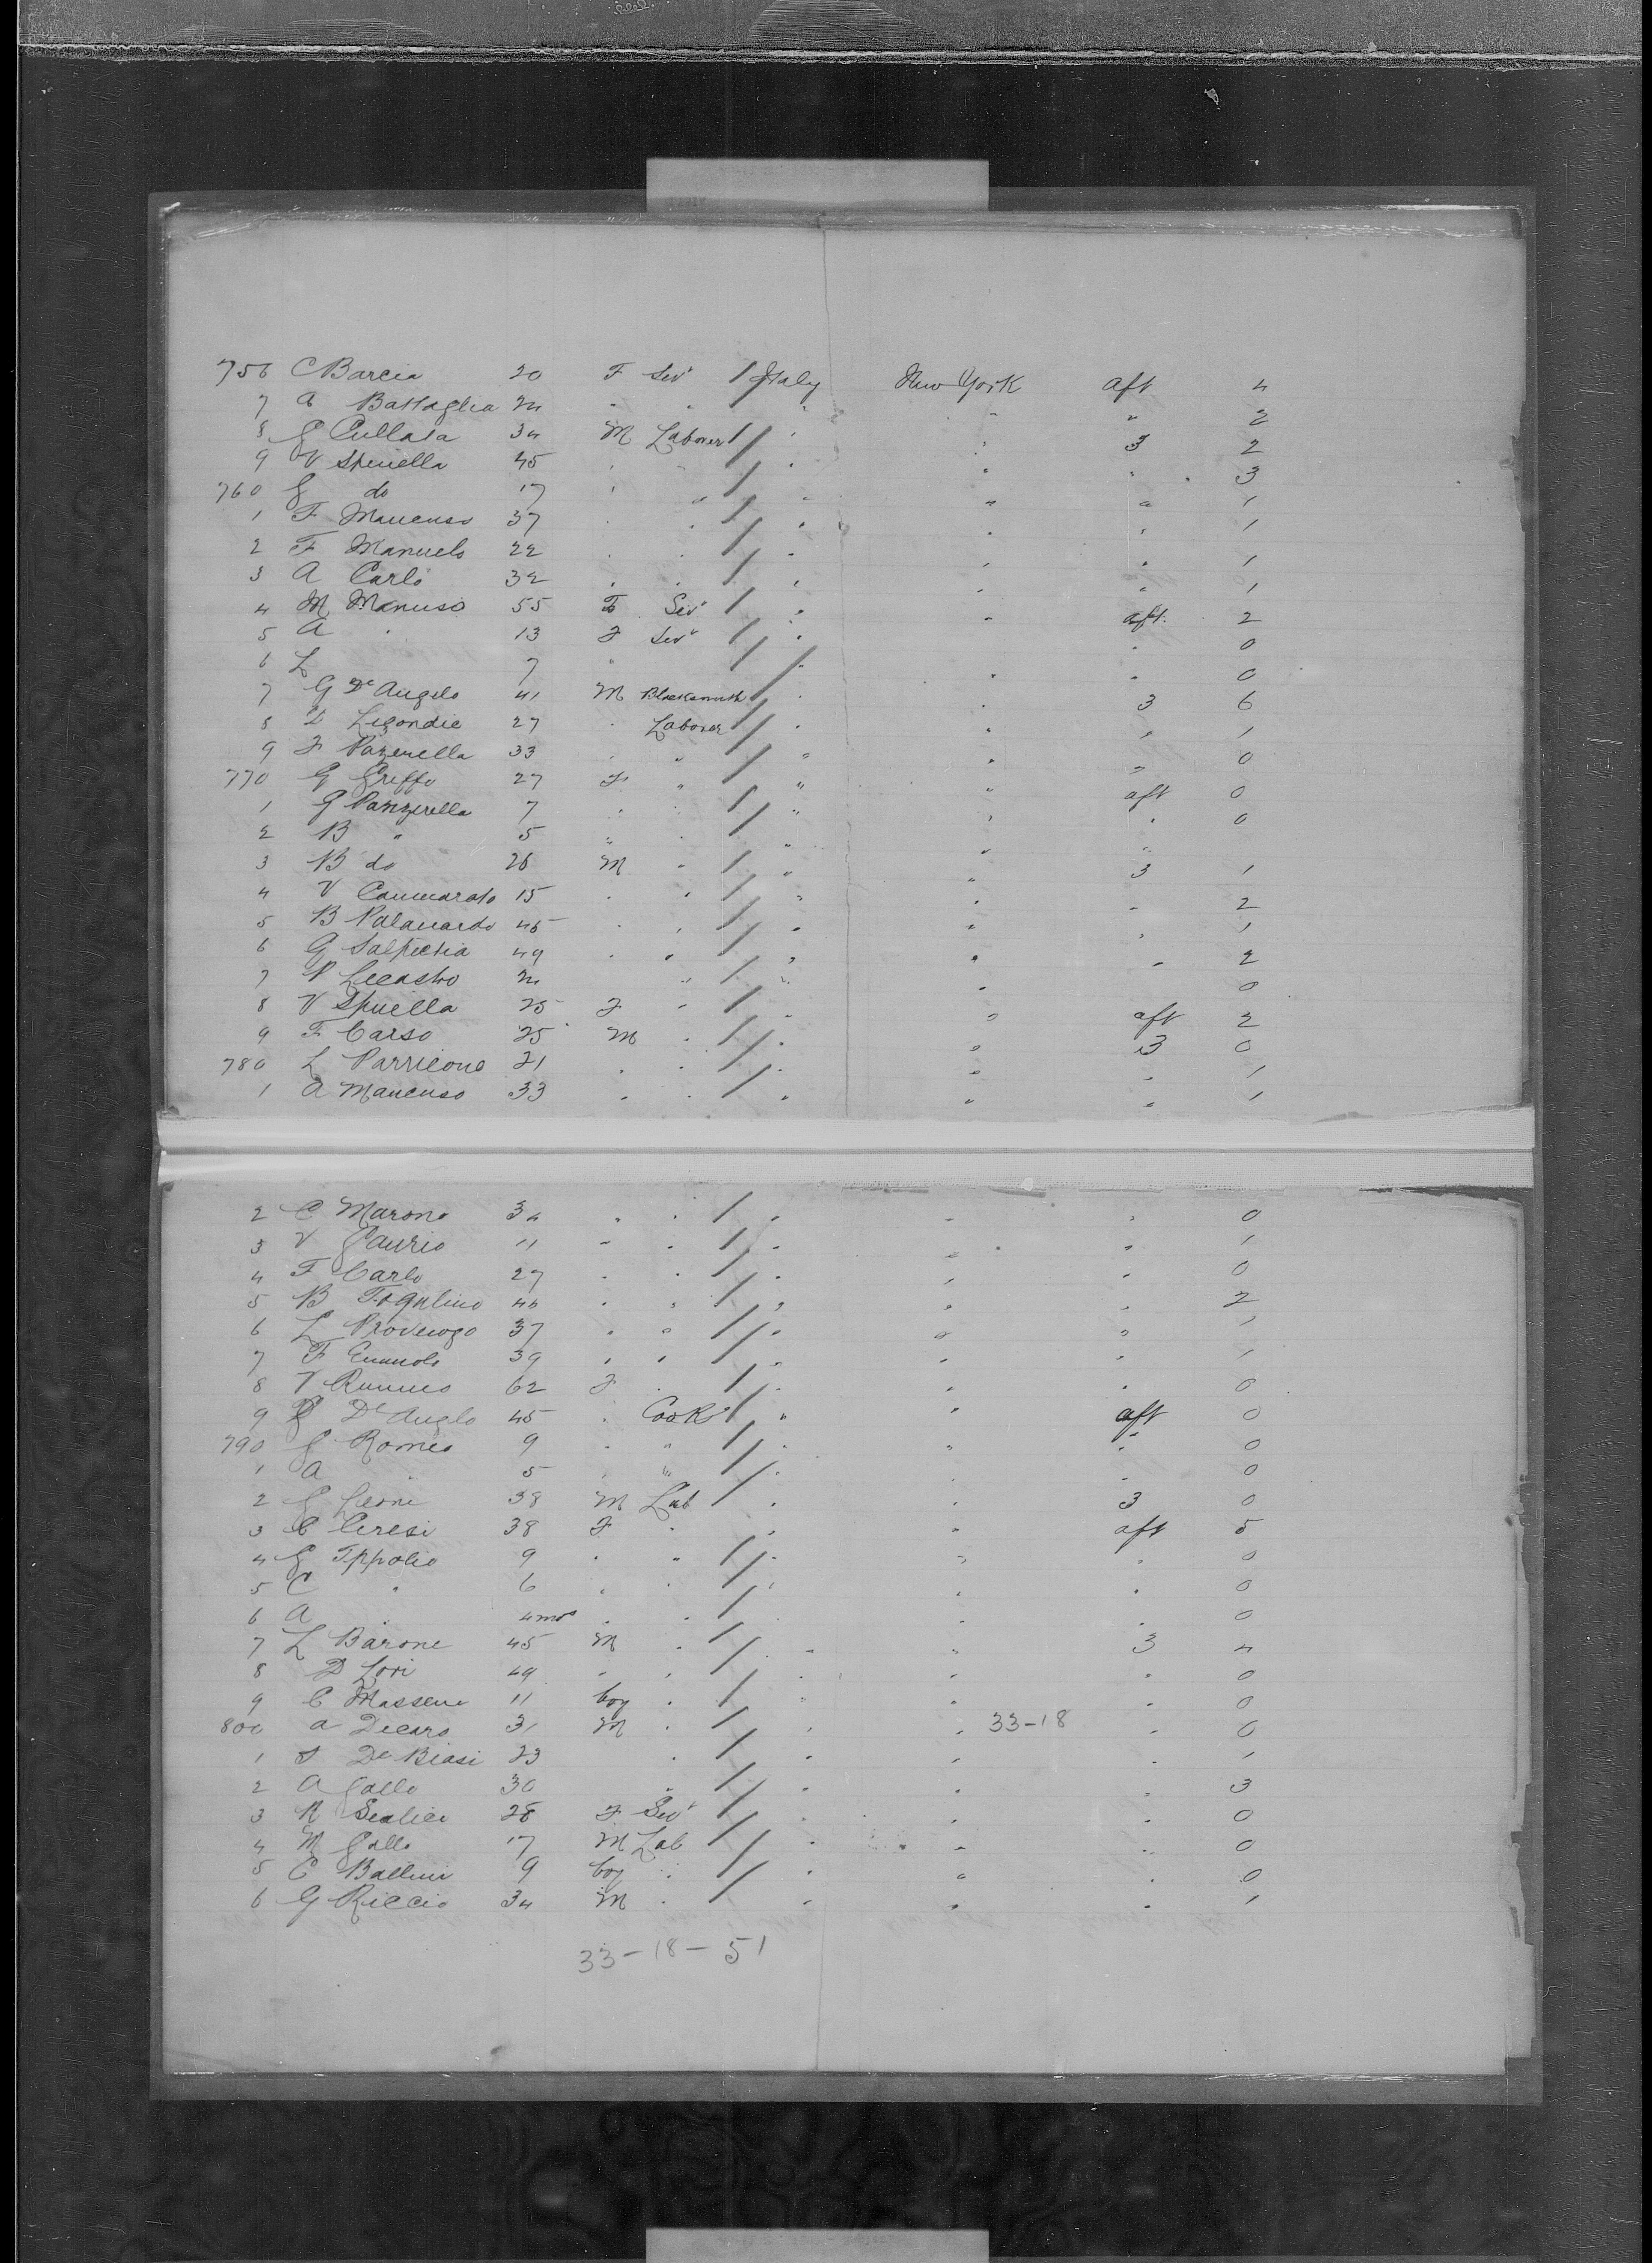 756 C Barcia 20 F Serv / Italy New York aft 4
7 A Battaglia 24 " " / " " " 2
8 G Cullata 34 M Laborer / " " 3 2
9 V Spinella 45 " " / " " " 3
760 G do 17 " " / " " " 1
1 F Mancuso 37 " " / " " " 1
2 F Manuelo 22 " " / " " " 1
3 A Carlo 32 " " / " " " 1
4 M Manuso 55 F Serv / " " aft 2
5 A " 13 F Serv / " " 0
6 L 7 " / " " 0
7 G De Angelo 41 M Blacksmith / " " 3 6
8 Ligondie 27 " Laborer / " " " 1
9 F Pazenella 33 " " / " " " 0
770 G Griffo 27 F " / " " aft 0
1 G Panzerella 7 " " / " " " 0
2 B " 5 " " / " " "
3 B do 26 M " / " " 3 1
4 V Cammarato 15 " " / " " " 2
5 B Palacardo 45 " " / " " " 1
6 G Salpietia 49 " " / " " " 2
7 P Licastro 24 " / " " 0
8 V Spinella 25 F " / " " aft 2
9 F Carso 25 M " / " " 3 0
780 L Parricone 21 " " / " " " 1
1 A Mancuso 33 " " / " " " 1
2 C Marono 34 " " / " " " 0
3 V Gaurio 11 " " / " " " 1
4 F Carlo 27 " " / " " " 0
5 B 44 " " / " " " 2
6 L 37 " " / " " " 1
7 F 39 " " / " " " 1
8 V 62 F " / " " " 0
9 G De Anglo 45 " Cook / " " aft 0
790 G Romeo 9 " " / " " " 0
1 A " 5 " " / " " " 0
2 G Leone 38 M Lab / " " 3 0
3 C Ceresi 38 F " " " aft 5
4 G Ippolio 9 " " / " " " 0
5 C " 6 " " / " " " 0
6 A " 4 mos " " / " " " 0
7 L Barone 45 M " / " " 3 4
8 D Lori 49 " " / " " " 0
9 C Massene 11 boy " / " " " 0
800 A Decaro 31 M " / " " 33-18 " 0
1 S De Biasi 23 " / " " " 1
2 A Gallo 30 " / " " " 3
3 R Scalici 28 F Serv / " " " 0
4 M Gallo 17 M Lab / " " " 0
5 C Ballini 9 boy " / " " " 0
6 G Riccio 34 M " / " " " 1
33-18-51